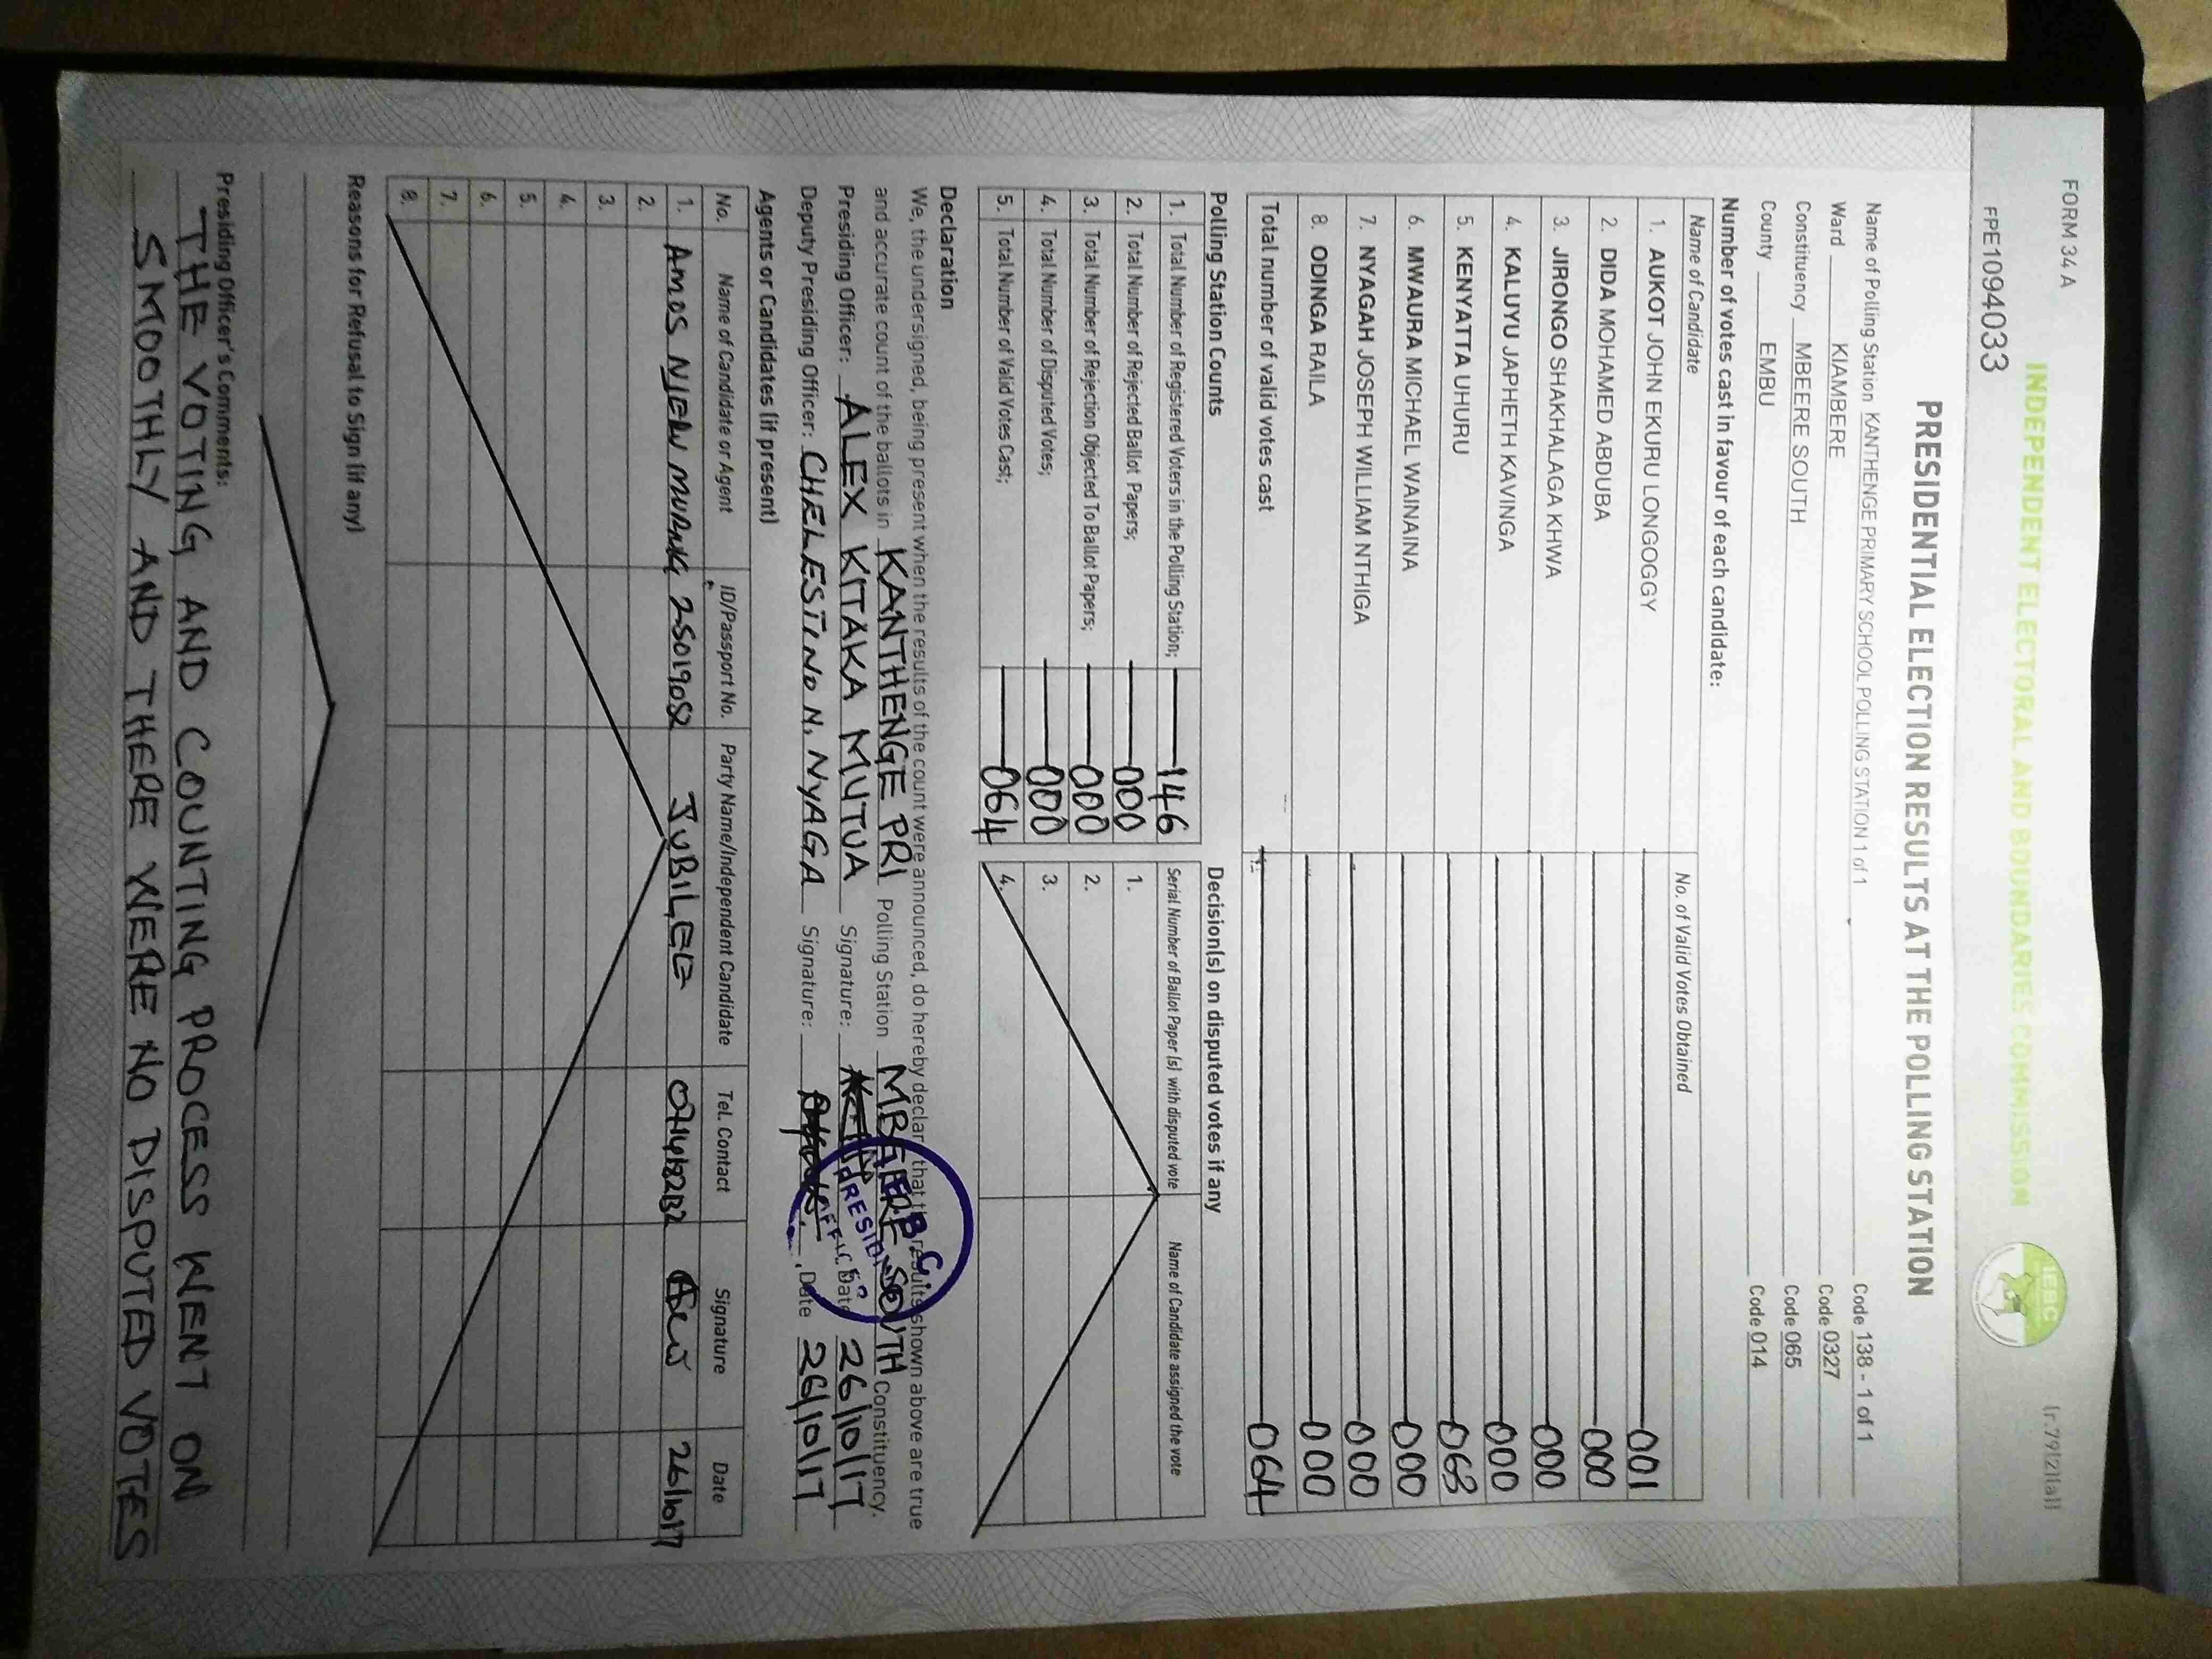 FORM 34 A
(r.79(2)(a))
INDEPENDENT ELECTORAL AND BOUNDARIES COMMISSION
IEBC
FPE1094033
PRESIDENTIAL ELECTION RESULTS AT THE POLLING STATION
Name of Polling Station KANTHENGE PRIMARY SCHOOL POLLING STATION 1 of 1 Code 138 - 1 of 1
Ward KIAMBERE Code 0327
Constituency MBEERE SOUTH Code 065
County EMBU Code 014
Number of votes cast in favour of each candidate:
Name of Candidate No. of Valid Votes Obtained
1. AUKOT JOHN EKURU LONGOGGY 001
2. DIDA MOHAMED ABDUBA 000
3. JIRONGO SHAKHALAGA KHWA 000
4. KALUYU JAPHETH KAVINGA 000
5. KENYATTA UHURU 063
6. MWAURA MICHAEL WAINAINA 000
7. NYAGAH JOSEPH WILLIAM NTHIGA 000
8. ODINGA RAILA 000
Total number of valid votes cast 064
Polling Station Counts Decision(s) on disputed votes if any
1. Total Number of Registered Voters in the Polling Station; 146 Serial Number of Ballot Paper (s) with disputed vote Name of Candidate assigned the vote
2. Total Number of Rejected Ballot Papers; 000 1.
3. Total Number of Rejection Objected To Ballot Papers; 000 2.
4. Total Number of Disputed Votes; 000 3.
5. Total Number of Valid Votes Cast; 064 4.
Declaration
We, the undersigned, being present when the results of the count were announced, do hereby declare that the results shown above are true
and accurate count of the ballots in KANTHENGE PRI Polling Station MBEERE SOUTH Constituency.
Presiding Officer: ALEX KITAKA MUTUA Signature: Date 26/10/17
Deputy Presiding Officer: CHELESTINO N. NYAGA Signature: Date 26/10/17
Agents or Candidates (if present)
No. Name of Candidate or Agent ID/Passport No. Party Name/Independent Candidate Tel. Contact Signature Date
1. AMOS NJERU JUBILEE 26/10/17
2.
3.
4.
5.
6.
7.
8.
Reasons for Refusal to Sign (if any)
Presiding Officer's Comments:
THE VOTING AND COUNTING PROCESS WENT ON
SMOOTHLY AND THERE WERE NO DISPUTED VOTES